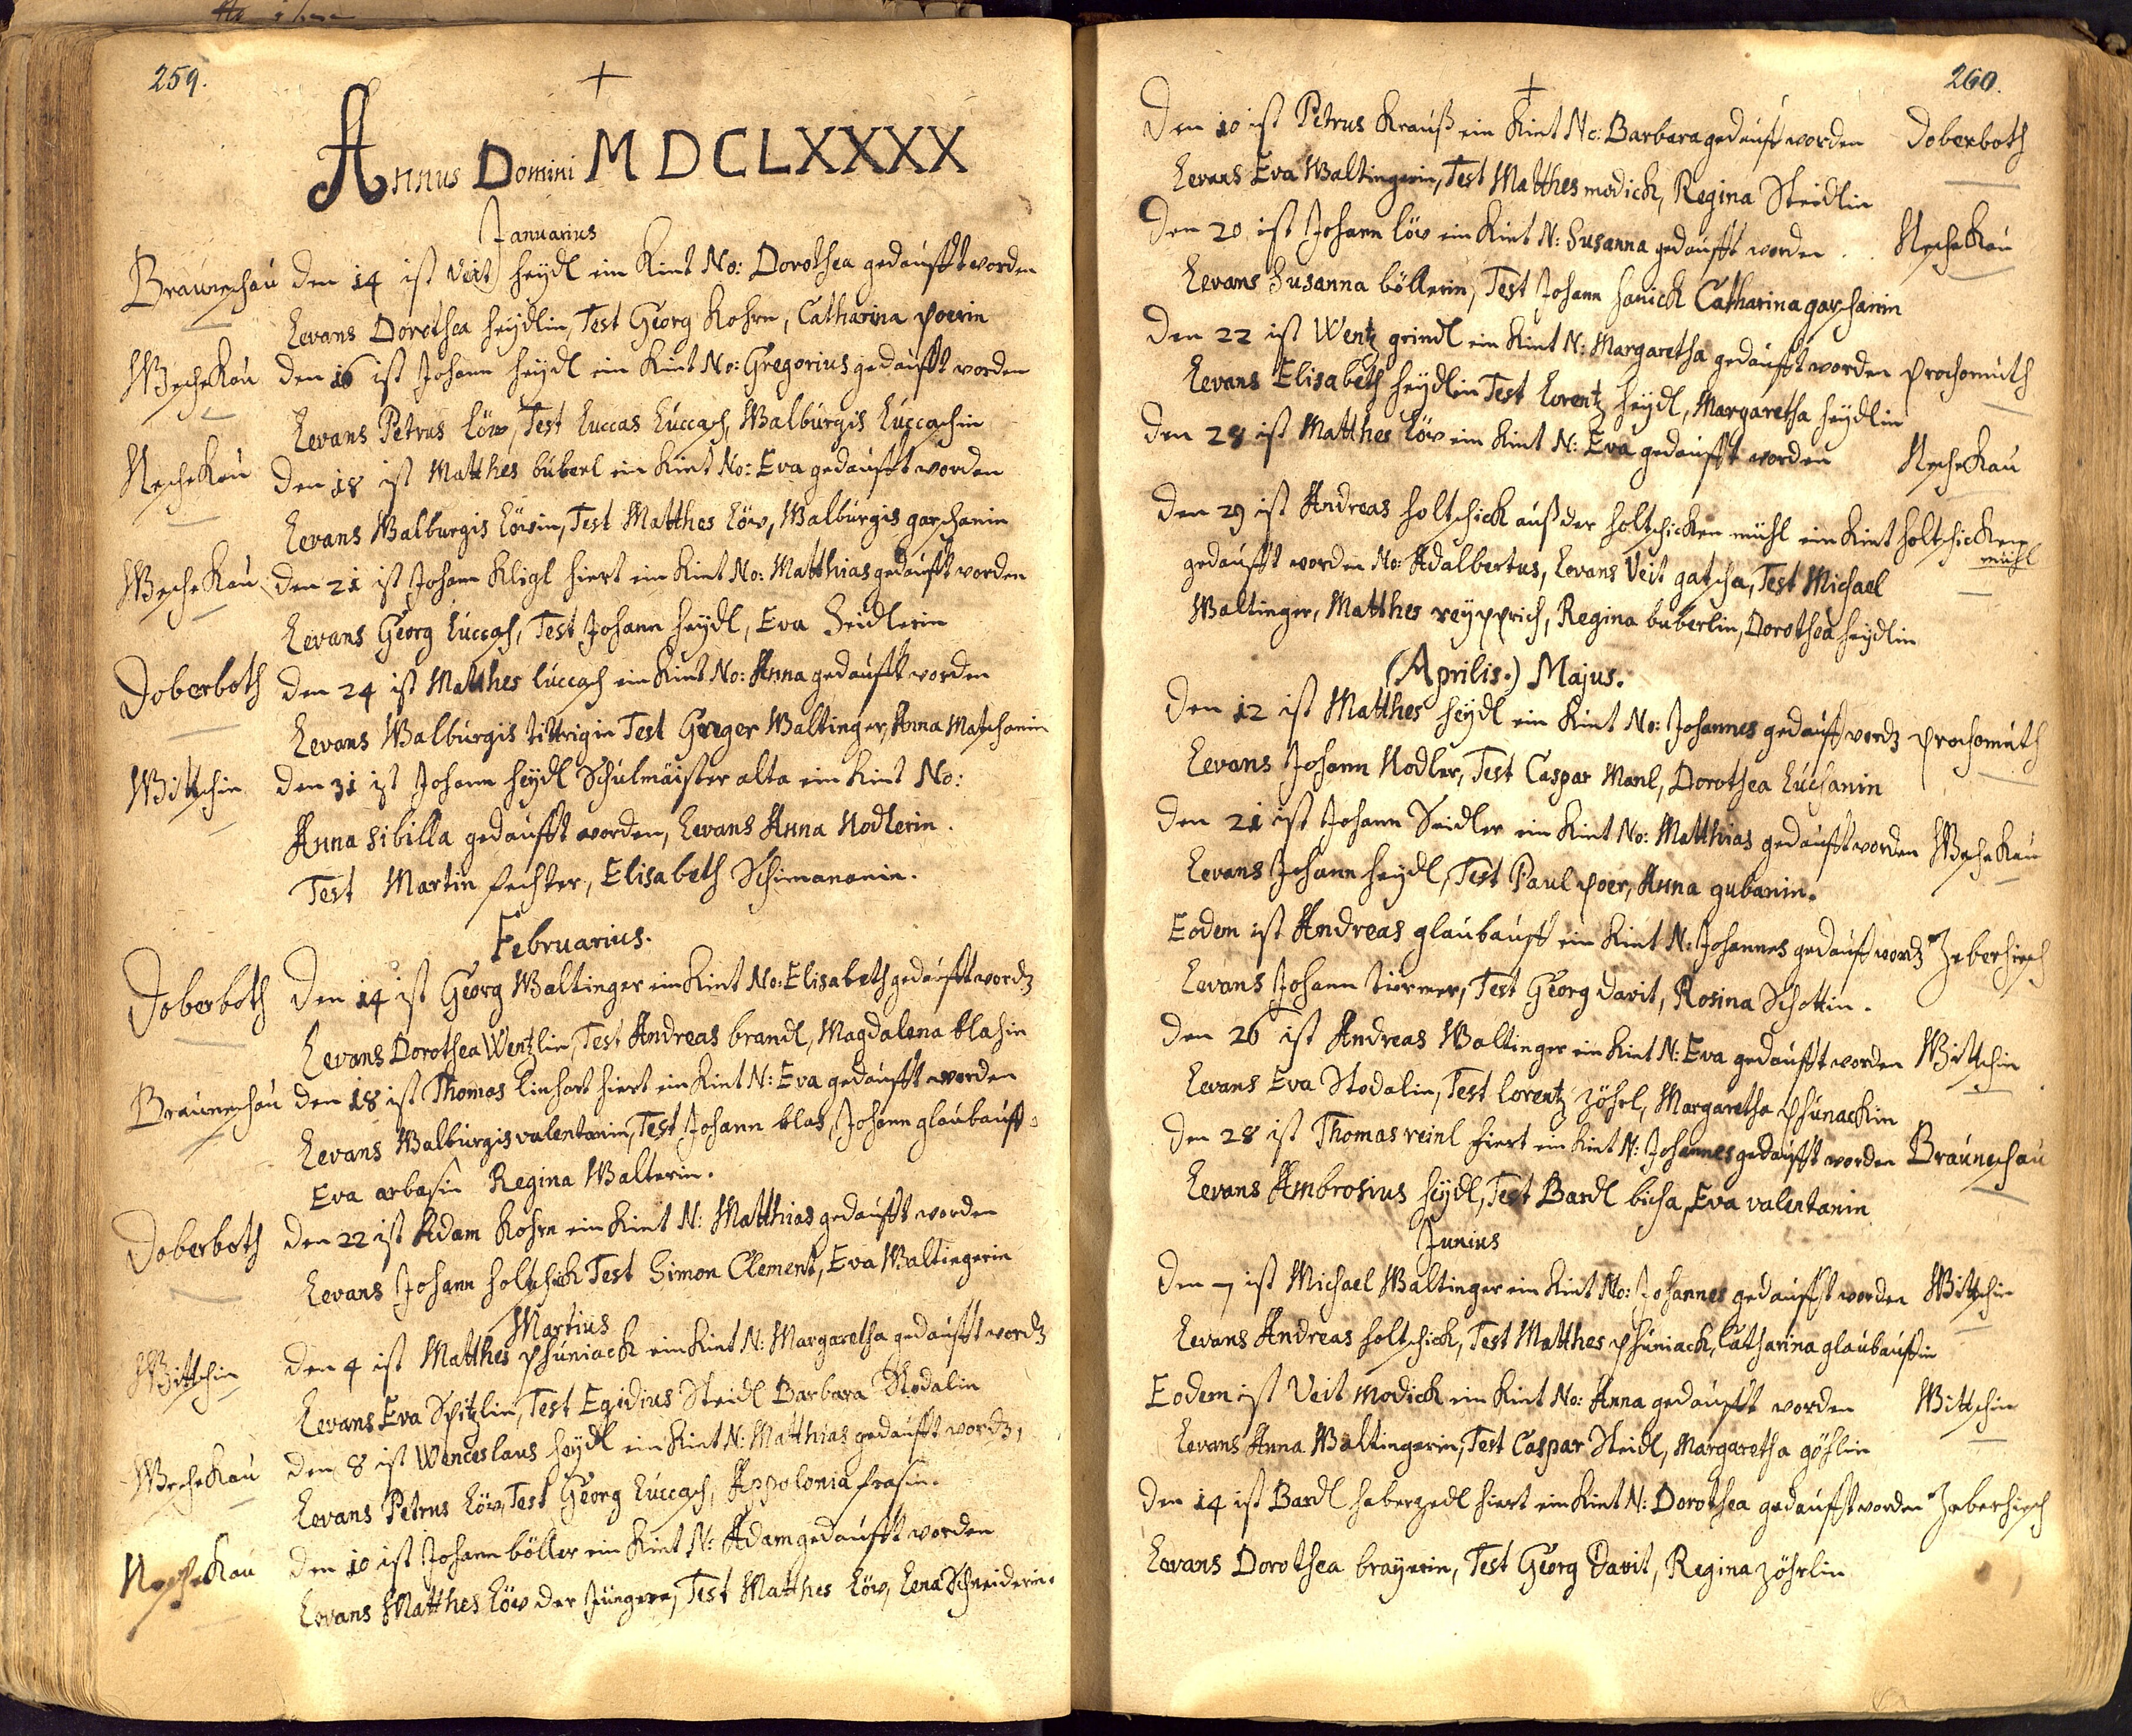 259.
+
Annus Domini MDCLXXXX
Januarius
Braunschau den 14 ist Veit heydl ein Kint No: Dorothea gedaufft worden
Levans Dorothea heydlin, Test Georg Kohrn, Catharina poerin
Wescheкau den 16 ist Johann heydl ein Kint No: Gregorius gedaufft worden
Levans Petrus Löw, Test Luccas Luccasch, Walburgis Luccaschin
Nescheкau den 18 ist Matthes buberl ein Kint No: Eva gedaufft worden
Levans Walburgis Löwin, Test Matthes Löw, Walburgis garschanin
Wescheкau den 21 ist Johann Kligl hiert ein Kint No: Matthias gedaufft worden
Levans Georg Luccasch, Test Johann heydl, Eva Seidlerin
Doberboth den 24 ist Matthes luccasch ein Kint No: Anna gedaufft worden
Levans Walburgis tittrigin Test Greger Waltinger, Anna Matschanin
Wittschin den 31 ist Johann heydl Schulmäister alta ein Kint No:
Anna Sibilla gedaufft worden, Levans Anna Nodlerin.
Test Martin fechter, Elisabeth Schimananin.
Februarius.
Doberboth Den 14 ist Georg Waltinger ein Kint No: Elisabeth gedaufft wordz
Levans Dorothea Wentzlin, Test Andreas brandl, Magdalena blahin
Braunschau den 18 ist Thomas linhart hiert ein Kint N: Eva gedaufft worden
Levans Walburgis valentanin, Test Johann blah, Johann glaubauf=
Eva arbasin Regina Walterin.
Doberboth den 22 ist Adam Kohrn ein Kint N: Matthias gedaufft worden
Levans Johann holtschick Test Simon Clement, Eva Waltingerin
Martius
Wittschin den 4 ist Matthes phuniack ein Kint N: Margaretha gedaufft wordz
Levans Eva Spitzlin, Test Egidius Steidl Barbara Stodalin
Wescheкau den 8 ist Wenceslaus heydl ein Kint N: Matthias gedaufft wordz,
Levans Petrus Löw, Test Georg Luccasch, Appolonia frasin.
Nescheкau den 10 ist Johann böller ein Kint N: Adam gedaufft worden
Levans Matthes Löw der Jüngere, Test Matthes Löw, Lena Schneiderin.
260.
+
Den 10 ist Petrus Krauß ein Kint No: Barbara gedauft worden Doberboth
Levans Eva Waltingerin, Test Matthes modick, Regina Steidlin
Den 20 ist Johann löw ein Kint N: Susanna gedaufft worden. Nescheкau
Levans Susanna böllerin, Test Johann hanick Catharina garschanin
Den 22 ist Wentz grindl ein Kint N: Margaretha gedaufft worden prochomuth
Levans Elisabeth heydlin Test Lorentz heydl, Margaretha heydlin
Den 28 ist Matthes Löw ein Kint N: Eva gedaufft worden Nescheкau
Den 29 ist Andreas holtschick auß der holtschicken mühl ein Kint holtschicken mühl
gedaufft worden No: Adalbertus, Levans Veit gatscha, Test Michael
Waltinger, Matthes reypprich, Regina buberlin, Dorothea heydlin
(Aprilis.) Majus.
Den 12 ist Matthes heydl ein Kint No: Johannes gedauft wordz prochomuth
Levans Johann Nodler, Test Caspar Manl, Dorothea Luchanin
Den 21 ist Johann Seidler ein Kint No: Matthias gedaufft worden Wescheкau
Levans Johann heydl, Test Paul poer, Anna gubanin.
Eodem ist Andreas glaubauf ein Kint N: Johannes gedauft wordz Zeberhiesch
Levans Johann türmer, Test Georg davit, Rosina Schottin.
Den 26 ist Andreas Waltinger ein Kint N: Eva gedaufft worden Wittschin
Levans Eva Stodalin, Test Lorentz zöhrl, Margaretha phunackin
Den 28 ist Thomas reinl hiert ein Kint N: Johannes gedaufft worden Braunschau
Levans Ambrosius heydl, Test Bardl bicha, Eva valentanin
Junius
Den 7 ist Michael Waltinger ein Kint No: Johannes gedaufft worden Wittschin
Levans Andreas holtschick, Test Matthes phuniack, Catharina glaubaufin
Eodem ist Veit Modick ein Kint No: Anna gedaufft worden Wittschin
Levans Anna Waltingerin, Test Caspar Steidl, Margaretha göhlin
Den 14 ist Bardl haberzedl hiert ein Kint N: Dorothea gedaufft worden Zeberhiesch
Levans Dorothea brayerin, Test Georg Davit, Regina zöhrlin